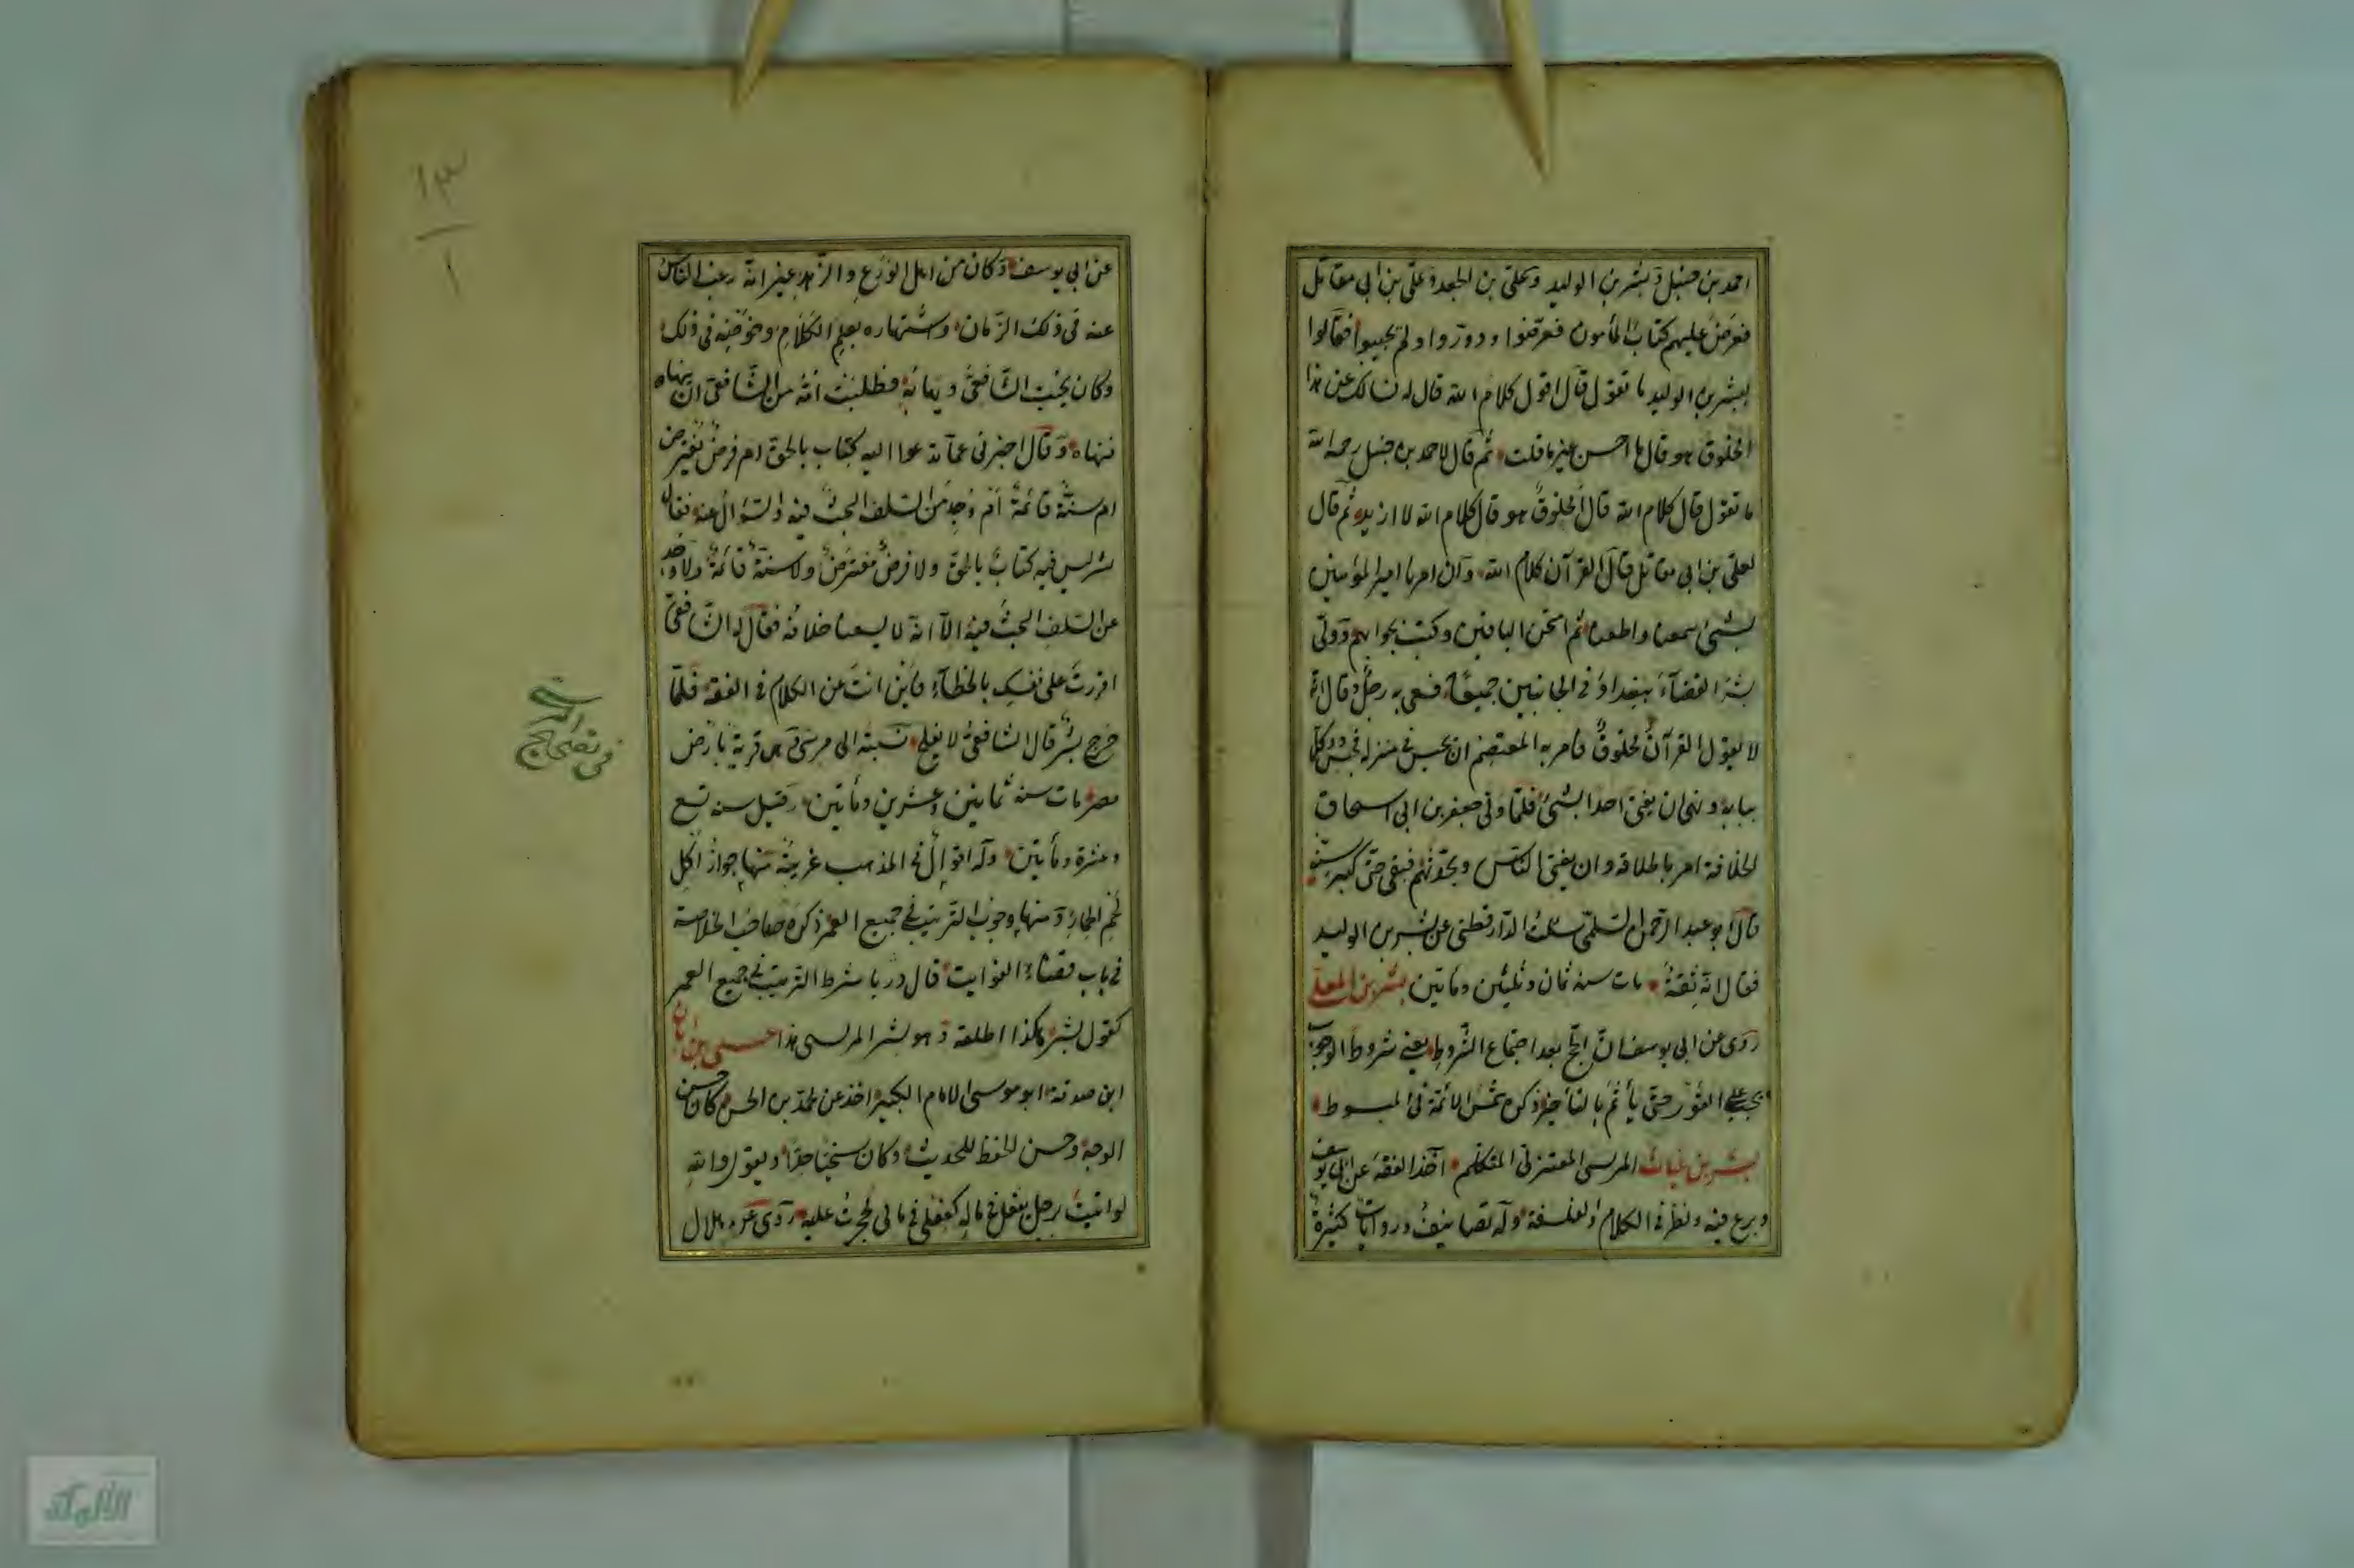 احمد بن حنبل وبشر بن الوليد وعلى بن الجعد وعلى بن ابى مقاتل
فعرض عليهم كتاب المأمون فعرّفوا ودورّوا ولم يجيبوا فقالوا
لبشر بن الوليد ما تقول قال اقول كلام الله قال لم نسالك عن هذا
المخلوق هو قال ما احسن غير ما قلت ثم قال لاحمد بن حنبل رحمه الله
ما تقول قال كلام الله قال المخلوق هو قال كلام الله لا ازيد ثم قال
لعلى بن ابى مقاتل قال القرآن كلام الله وان امرنا امير المؤمنين
بشئ سمعنا واطعنا ثم امتحن الباقين وكتب بجوابهم وولّى
بشر القضاء ببغداد فى الجانبين جميعًا فسعى به رجل وقال انه
لا يقول القرآن مخلوق فامر به المعتصم ان يحبس فى منزله فحبس ووكل
ببابه ونهى ان يفتى احدا بشئ فلمّا ولى جعفر بن ابى اسحاق
الخلافة امر باطلاقه وان يفتى الناس ويحدثهم فبقى حتى كبر سنه
قال ابو عبد الرحمن السلمى سألت الدارقطنى عن بشر بن الوليد
فقال انه ثقة مات سنة ثمان وثلثين ومأتين بشر بن المعلى
روى عن ابى يوسف انّ الحج بعد اجتماع الشروط يعنى شروط الوجوب
يجب على الفور حتى يأثم بالتأخير ذكره شمس الائمة فى المبسوط
بشر بن غياث المريسى المعتزلى المتكلم اخذ الفقه عن ابى يوسف
وبرع فيه ونظر فى الكلام والفلسفة وله تصانيف وروايات كثيرة
١٣
١
عن ابى يوسف وكان من اهل الورع والزهد غير انه رغب الناس
عنه فى ذلك الزمان واشتهاره بعلم الكلام وخوضه فى ذلك
وكان يحب الشافعى فطلبت امّه من الشافعى ان ينهاه
فنهاه وقال اخبرنى عما تدعوا اليه كتاب بالحق ام فرض مفترض
ام سنة قائمة ام وجد من السلف البحث فيه والسؤال عنه فقال
بشر ليس فيه كتاب بالحق ولا فرض مفترض ولا سنة قائمة ولا وجد
عن السلف البحث فيه الا انه لا يسعنا خلافه فقال له الشافعى
اقررت على نفسك بالخطاء فاين انت عن الكلام فى الفقه فلما
خرج بشر قال الشافعى لا يفلح نسبته الى مريس هى قرية بارض
مصر مات سنة ثمانين وعشرين ومأتين وقيل سنة تسع
وعشرة ومأتين وله اقوال فى المذهب غريبة منها جواز اكل
لحم الحمار ومنها وجوب الترتيب فى جميع العمر ذكره صاحب الخلاصة
فى باب قضاء الفوايت قال شرط الترتيب فى جميع العمر
كقول بشر هكذا اطلقه وهو بشر المريسى هذا عيسى بن ابان
ابن صدقة ابو موسى الامام الكبير اخذ عن محمد بن الحسن كان حسن
الوجه وحسن الحفظ للحديث وكان سخيا جدا ويقول والله
لو اتيت برجل يفعل فى ماله كفعلى فى مالى لحجرت عليه روى عن هلال